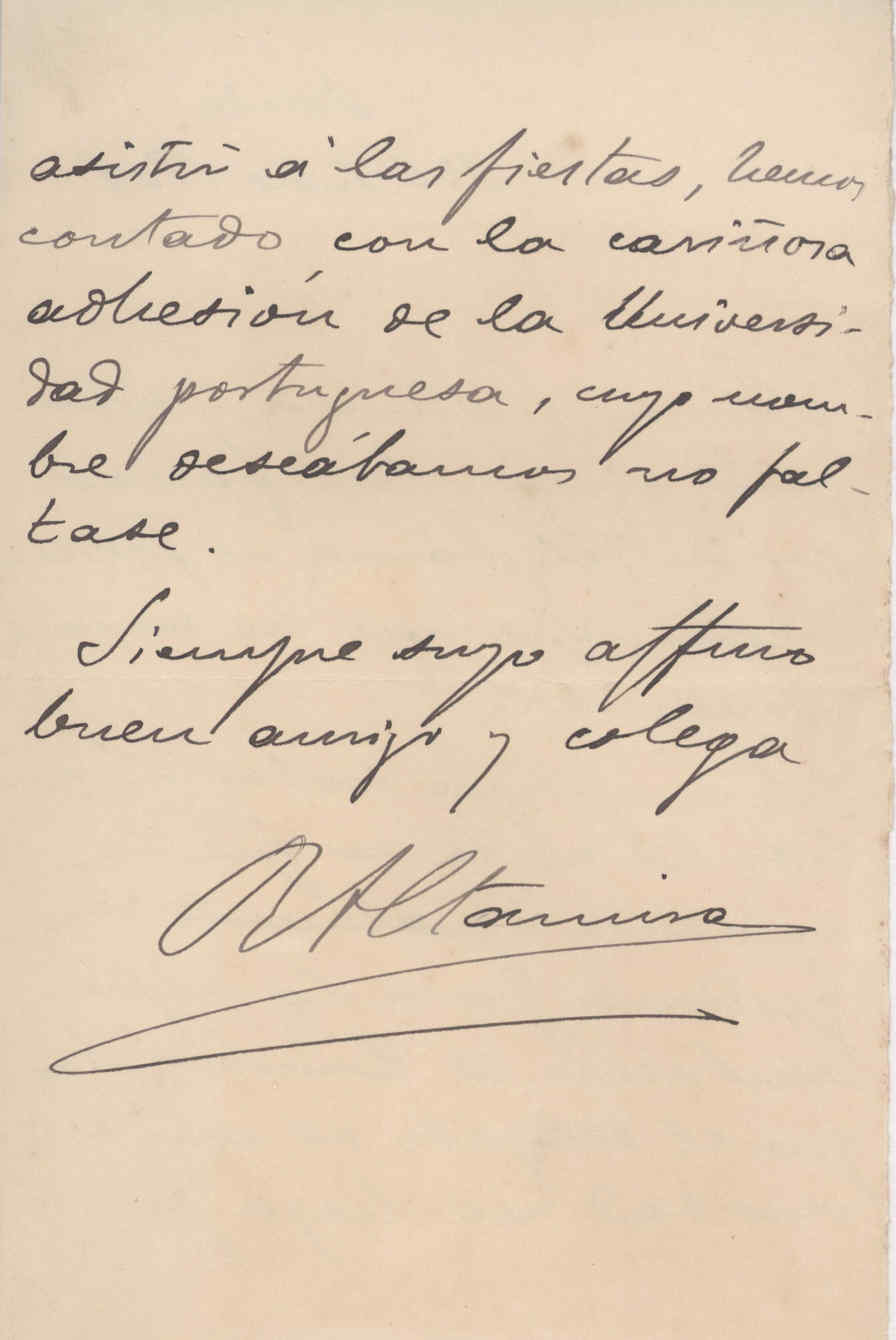 asistir á las fiestas, hemos
contado con la cariñosa
adhesión de la Universi-
dad portuguesa, cuyo nom-
bre deseábamos no fal-
tase.
Siempre suyo affmo
buen amigo y colega
R Altamira